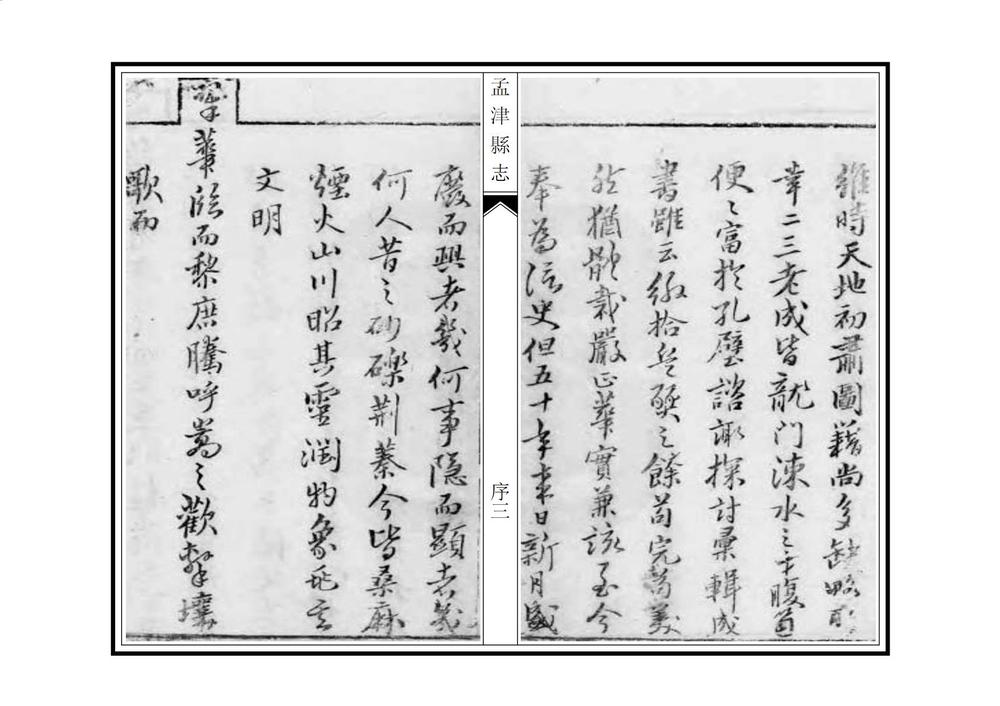 維時天地初肅圖籍尚多缺略所
幸二三老成皆龍門涑水之
腹笥便便富於孔壁諮諏探討彙輯成
書雖云綴拾兵燹之餘苟完苟美
然猶體裁嚴正華實兼該至今
奉為信史但五十年來日新月盛
孟津縣志
序三
廢而興者幾何事隱而顯者幾
何人昔之砂礫荊蓁今皆桑麻
煙火山川昭其靈潤物象
文明
翠華臨而黎庶騰呼嵩之歡擊壤
歌而